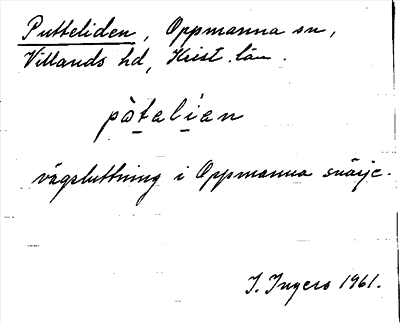 Putteliden, Oppmanna sn,
Villands hd, Krist. län.
pòtalían
vägsluttning i Oppmanna
I. Ingers 1961.